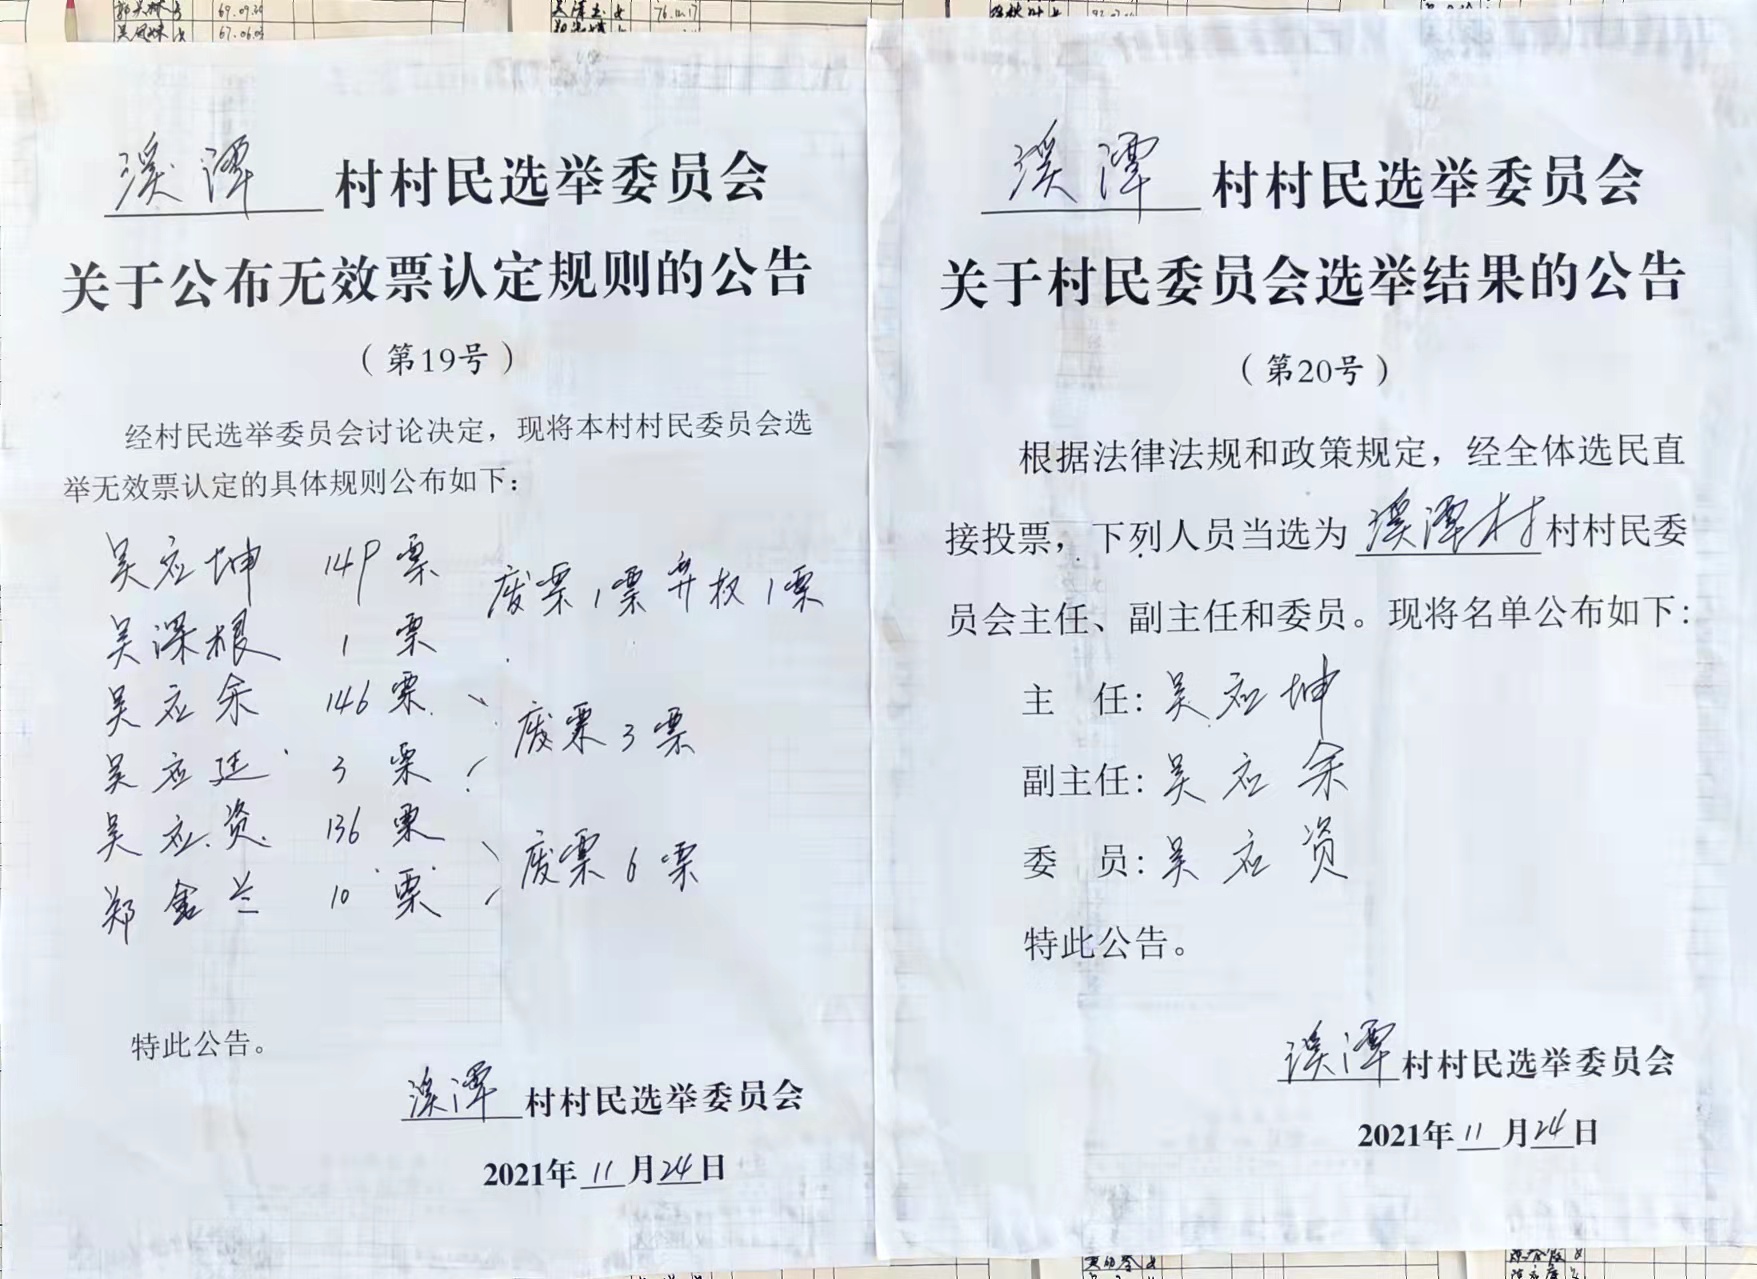 溪潭 村村民选举委员会
关于公布无效票认定规则的公告
（第19号）
经村民选举委员会讨论决定，现将本村村民委员会选
举无效票认定的具体规则公布如下：
吴应坤 149票 废票1票弃权1票
吴深根 1票
吴应余 146票
废票3票
吴应廷 3票
吴应资 136票
废票6票
郑金兰 10票
特此公告。
溪潭村村民选举委员会
2021年11月24日
溪潭 村村民选举委员会
关于村民委员会选举结果的公告
（第20号）
根据法律法规和政策规定，经全体选民直
接投票，下列人员当选为溪潭村村村民委
员会主任、副主任和委员。现将名单公布如下:
主　任: 吴应坤
副主任: 吴应余
委　员: 吴应资
特此公告。
溪潭村村民选举委员会
2021年11月24日